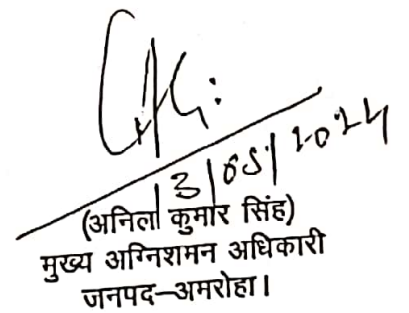 13/05/2024
(अनिल कुमार सिंह)
मुख्य अग्निशमन अधिकारी
जनपद–अमरोहा।